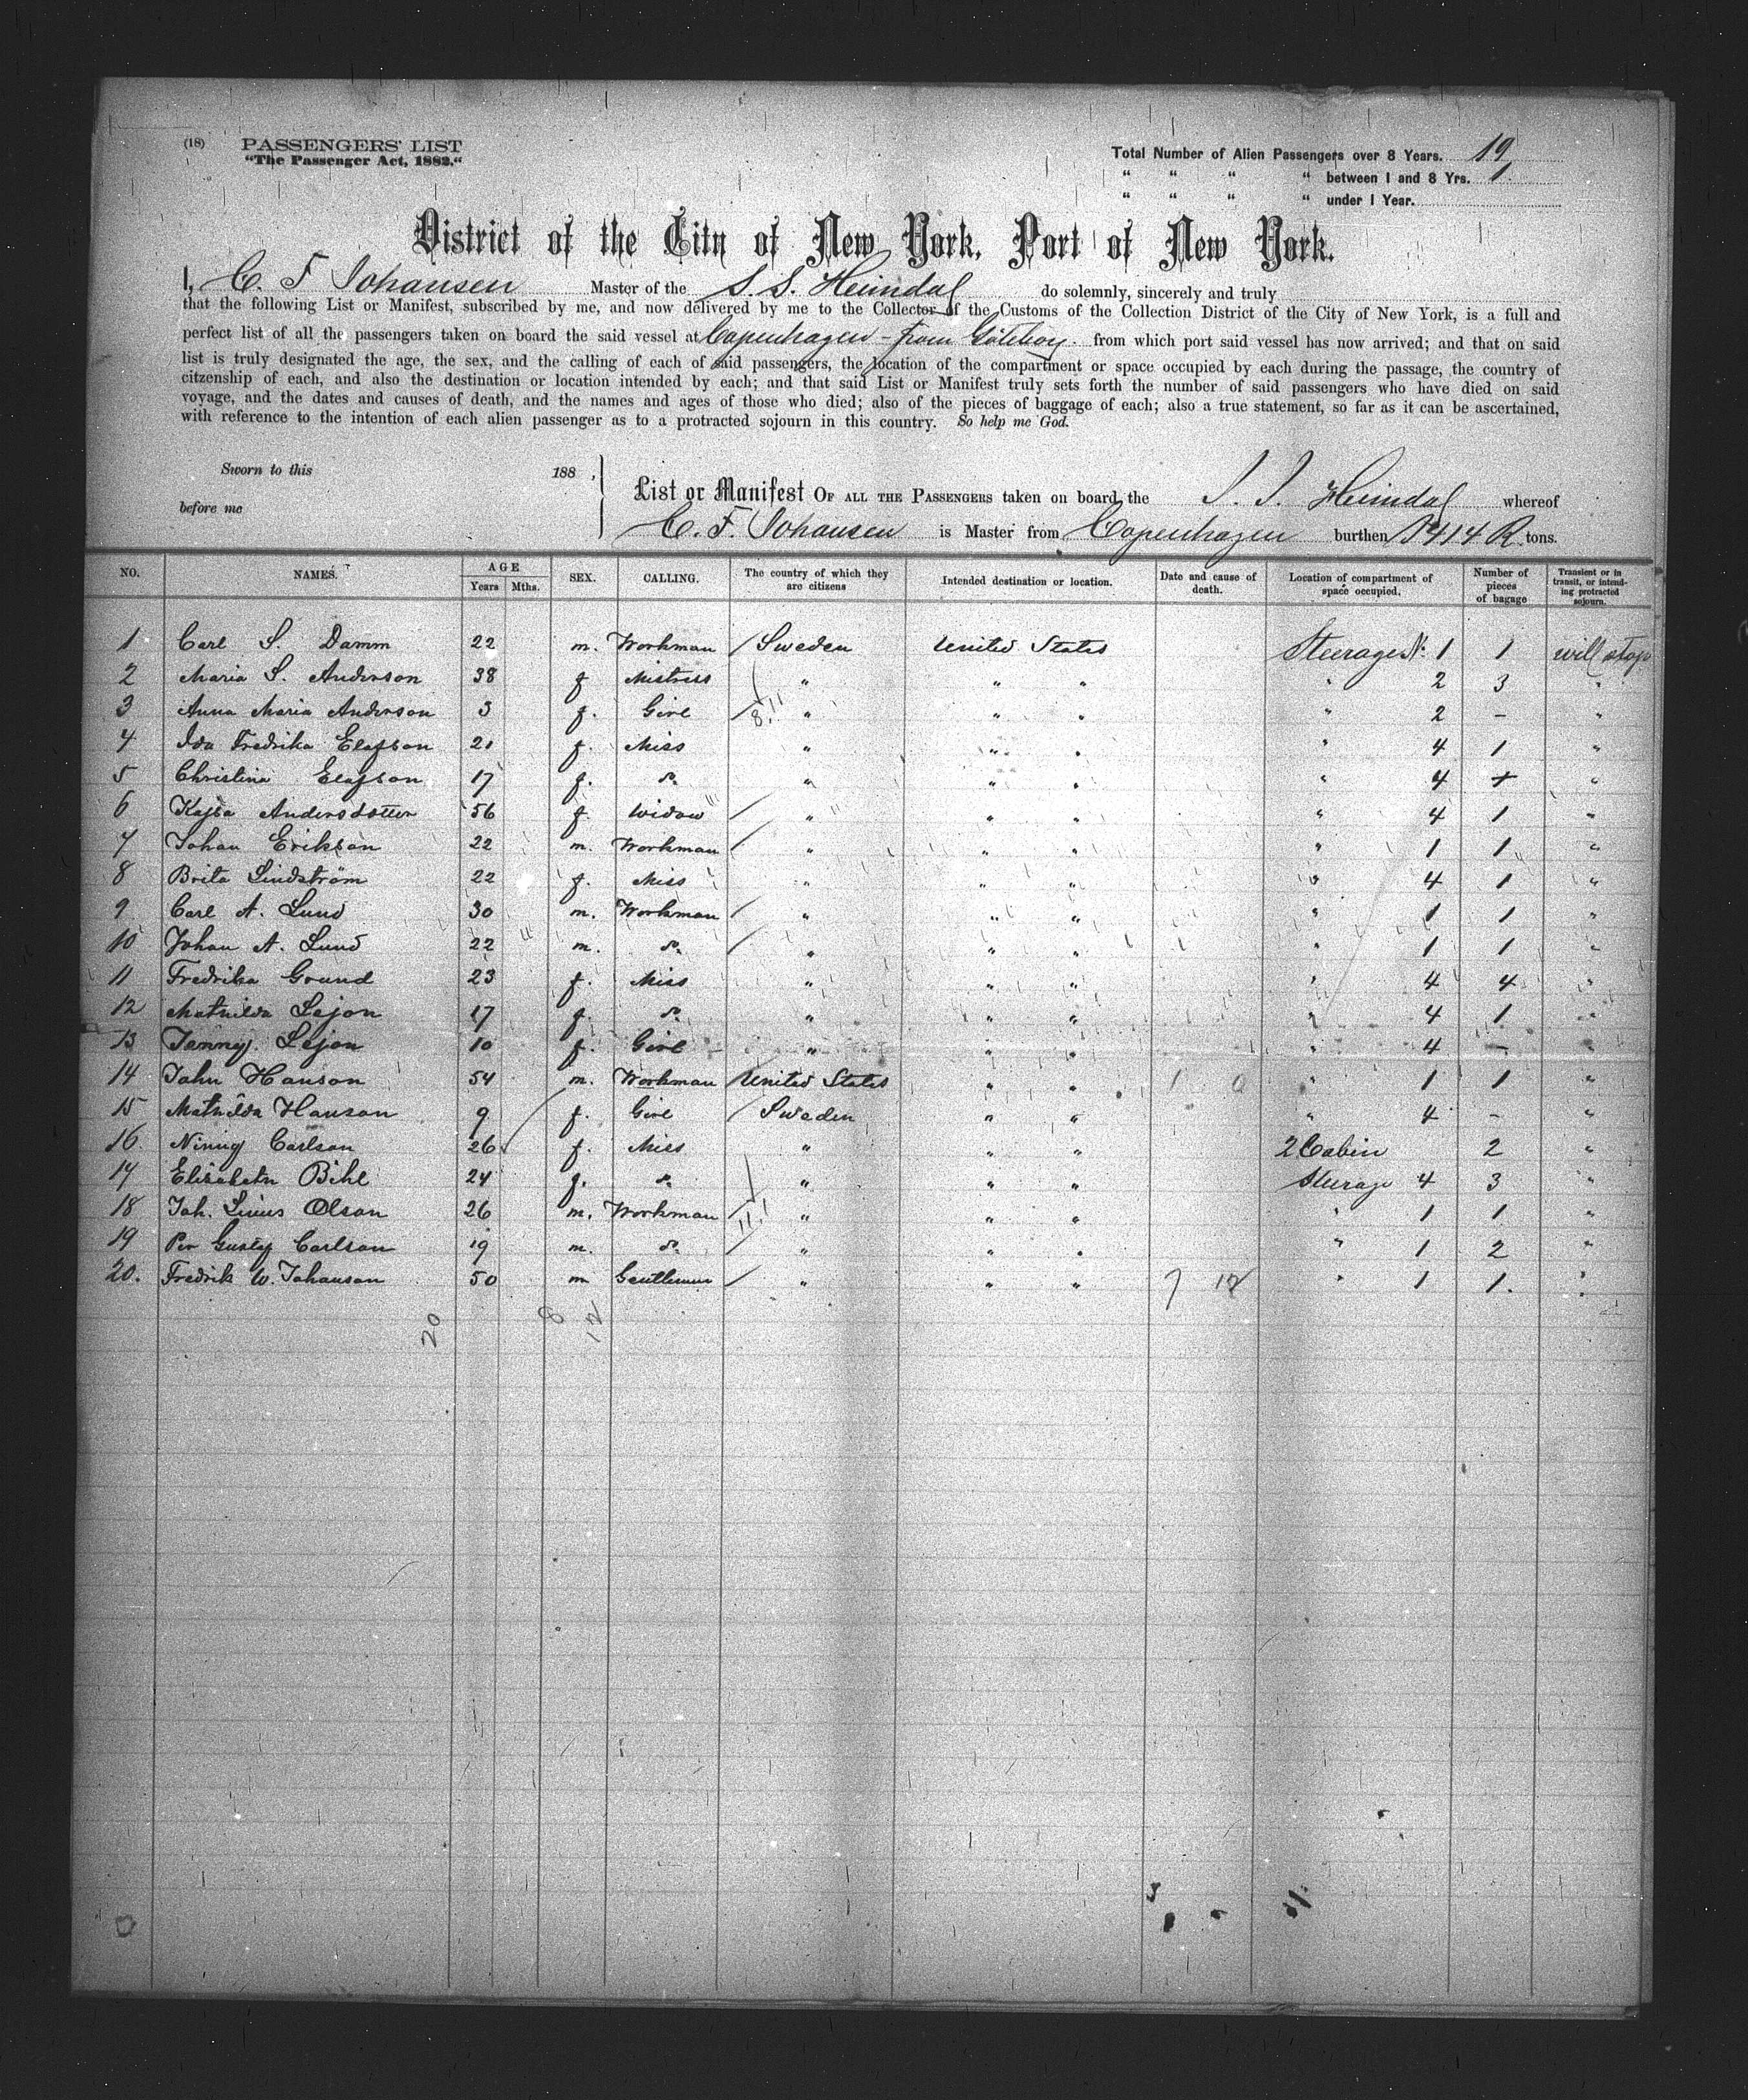 (18) PASSENGERS' LIST
"The Passenger Act, 1882."
Total Number of Alien Passengers over 8 Years. 19
" " " " between 1 and 8 Yrs. 1.
" " " " under 1 Year.
District of the City of New York, Port of New York.
I, C. F. Johansen Master of the S. S. Heimdal do solemnly, sincerely and truly
that the following List or Manifest, subscribed by me, and now delivered by me to the Collector of the Customs of the Collection District of the City of New York, is a full and
perfect list of all the passengers taken on board the said vessel at Copenhagen - from Göteborg. from which port said vessel has now arrived; and that on said
list is truly designated the age, the sex, and the calling of each of said passengers, the location of the compartment or space occupied by each during the passage, the country of
citzenship of each, and also the destination or location intended by each; and that said List or Manifest truly sets forth the number of said passengers who have died on said
voyage, and the dates and causes of death, and the names and ages of those who died; also of the pieces of baggage of each; also a true statement, so far as it can be ascertained,
with reference to the intention of each alien passenger as to a protracted sojourn in this country. So help me God.
Sworn to this 188 ,
before me
List or Manifest OF ALL THE PASSENGERS taken on board the S. S. Heimdal whereof
C. F. Johansen is Master from Copenhagen burthen 1414 R. tons.
NO. NAMES. AGE Years Mths. SEX. CALLING. The country of which they are citizens Intended destination or location. Date and cause of death. Location of compartment of space occupied. Number of pieces of bagage Transient or in transit, or intending protracted sojourn.
1 Carl S. Damm 22 m. Workman Sweden United States Steerage N: 1 1 will stop
2 Maria S. Anderson 38 f Mistress " " " " 2 3 "
3 Anna Maria Anderson 3 f. Girl " " " " 2 - "
4 Ida Fredrika Elafson 21 f. Miss " " " " 4 1 "
5 Christina Elafson 17 f. do. " " " " 4 + "
6 Kajsa Andersdotter 56 f. Widow " " " " 4 1 "
7 Johan Erikson 22 m. Workman " " " " 1 1 "
8 Brita Lindström 22 f. Miss " " " " 4 1 "
9 Carl A. Lund 30 m. Workman " " " " 1 1 "
10 Johan A. Lund 22 m. do. " " " " 1 1 "
11 Fredrika Grund 23 f. Miss " " " " 4 4 "
12 Mathilda Lejon 17 f. do. " " " " 4 1 "
13 Jenny Lejon 10 f. Girl " " " " 4 - "
14 John Hanson 54 m. Workman United States " " 1 0 " 1 1 "
15 Mathilda Hanson 9 f. Girl Sweden " " " 4 - "
16. Ninny Carlson 26 f. Miss " " " 2 Cabin 2 "
17 Elisabeth Bihl 24 f. do. " " " Steerage 4 3 "
18 Joh. Linus Olson 26 m. Workman " " " " 1 1 "
19 Per Gustaf Carlson 19 m. do. " " " " 1 2 "
20. Fredrik W. Johanson 50 m Gentleman " " " 7 12 " 1 1. "
20 8 12